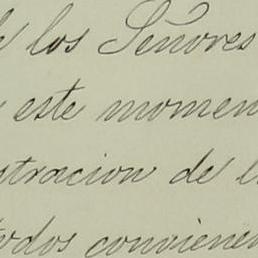 los Señores
este momen
stracion de l
todos convienen